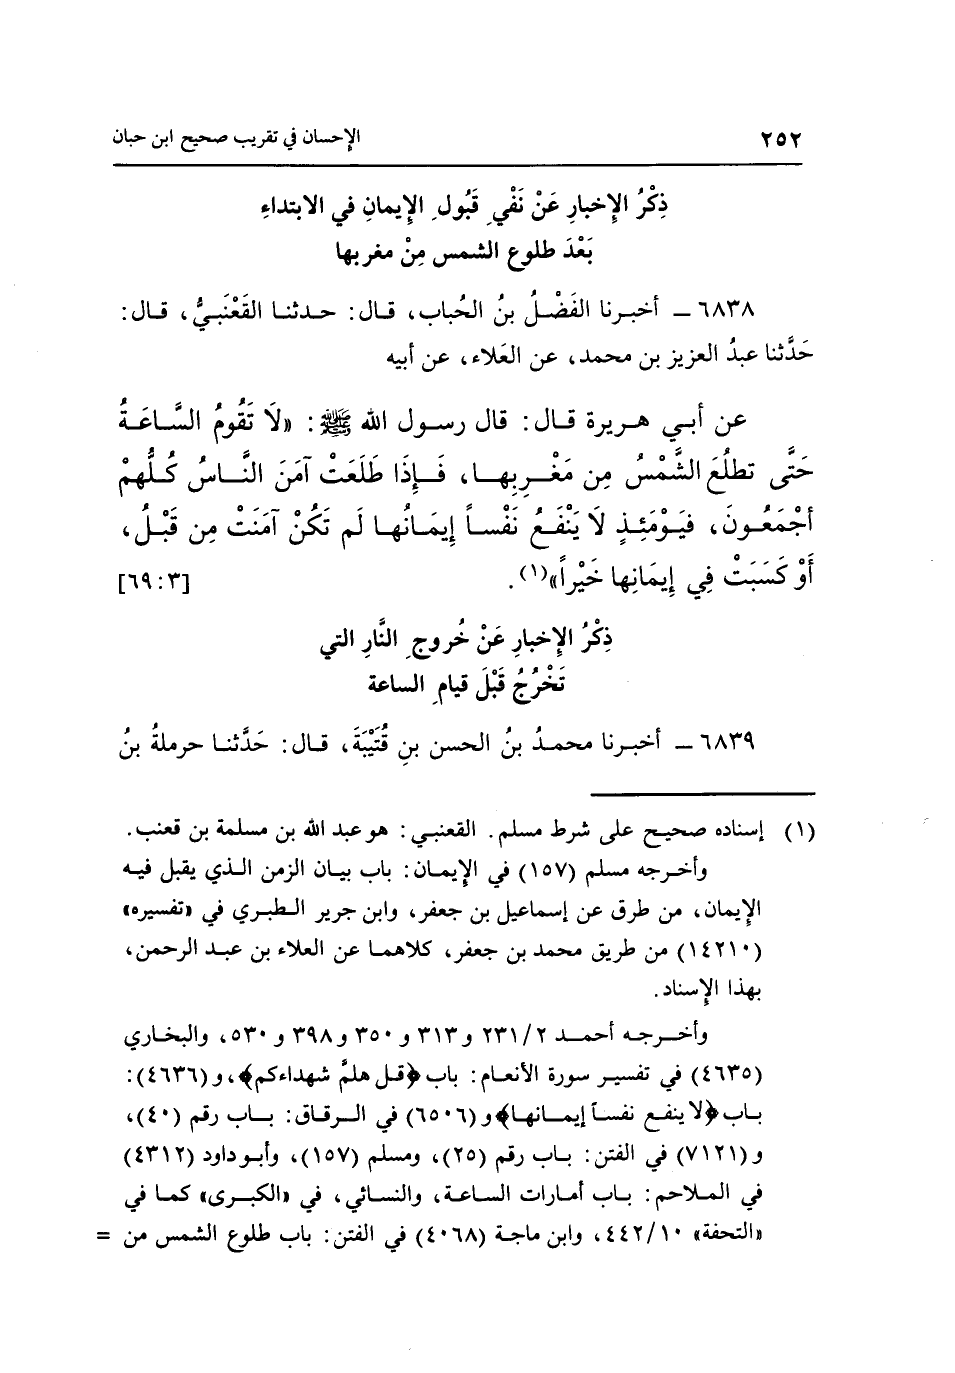 ٢٥٢ الإحسان في تقريب صحيح ابن حبان
ذِكْرُ الإِخبارِ عَنْ نَفْيِ قَبُولِ الإِيمانِ في الابتداءِ
بَعْدَ طلوع الشمس مِنْ مغربها
٦٨٣٨ ــ أخبرنا الفَضْلُ بنُ الحُباب، قال: حدثنا القَعْنَبيُّ، قال:
حَدَّثنا عبدُ العزيز بن محمد، عن العَلاء، عن أبيه
عن أبي هريرة قال: قال رسول الله ﷺ: «لَا تَقُومُ السَّاعَةُ
حَتَّى تطلُعَ الشَّمْسُ مِن مَغْرِبِها، فَإِذَا طَلَعَتْ آمَنَ النَّاسُ كُلُّهمْ
أجْمَعُونَ، فَيَوْمَئِذٍ لَا يَنْفَعُ نَفْساً إِيمَانُها لَم تَكُنْ آمَنَتْ مِن قَبْلُ،
أَوْ كَسَبَتْ فِي إِيمَانِها خَيْراً»(١). [٣: ٦٩]
ذِكْرُ الإِخبارِ عَنْ خُروجِ النَّارِ التي
تَخْرُجُ قَبْلَ قيامِ الساعة
٦٨٣٩ ــ أخبرنا محمدُ بنُ الحسن بنِ قُتَيْبَةَ، قال: حَدَّثنا حرملةُ بنُ
(١) إسناده صحيح على شرط مسلم. القعنبي: هو عبد الله بن مسلمة بن قعنب.
وأخرجه مسلم (١٥٧) في الإِيمان: باب بيان الزمن الذي يقبل فيه
الإِيمان، من طرق عن إسماعيل بن جعفر، وابن جرير الطبري في «تفسيره»
(١٤٢١٠) من طريق محمد بن جعفر، كلاهما عن العلاء بن عبد الرحمن،
بهذا الإِسناد.
وأخرجه أحمد ٢/٢٣١ و٣١٣ و٣٥٠ و٣٩٨ و٥٣٠، والبخاري
(٤٦٣٥) في تفسير سورة الأنعام: باب ﴿قل هلمَّ شهداءكم﴾، و(٤٦٣٦):
باب ﴿لا ينفع نفساً إيمانها﴾ و(٦٥٠٦) في الرقاق: باب رقم (٤٠)،
و(٧١٢١) في الفتن: باب رقم (٢٥)، ومسلم (١٥٧)، وأبو داود (٤٣١٢)
في الملاحم: باب أمارات الساعة، والنسائي، في «الكبرى» كما في
«التحفة» ١٠/٤٤٢، وابن ماجة (٤٠٦٨) في الفتن: باب طلوع الشمس من =